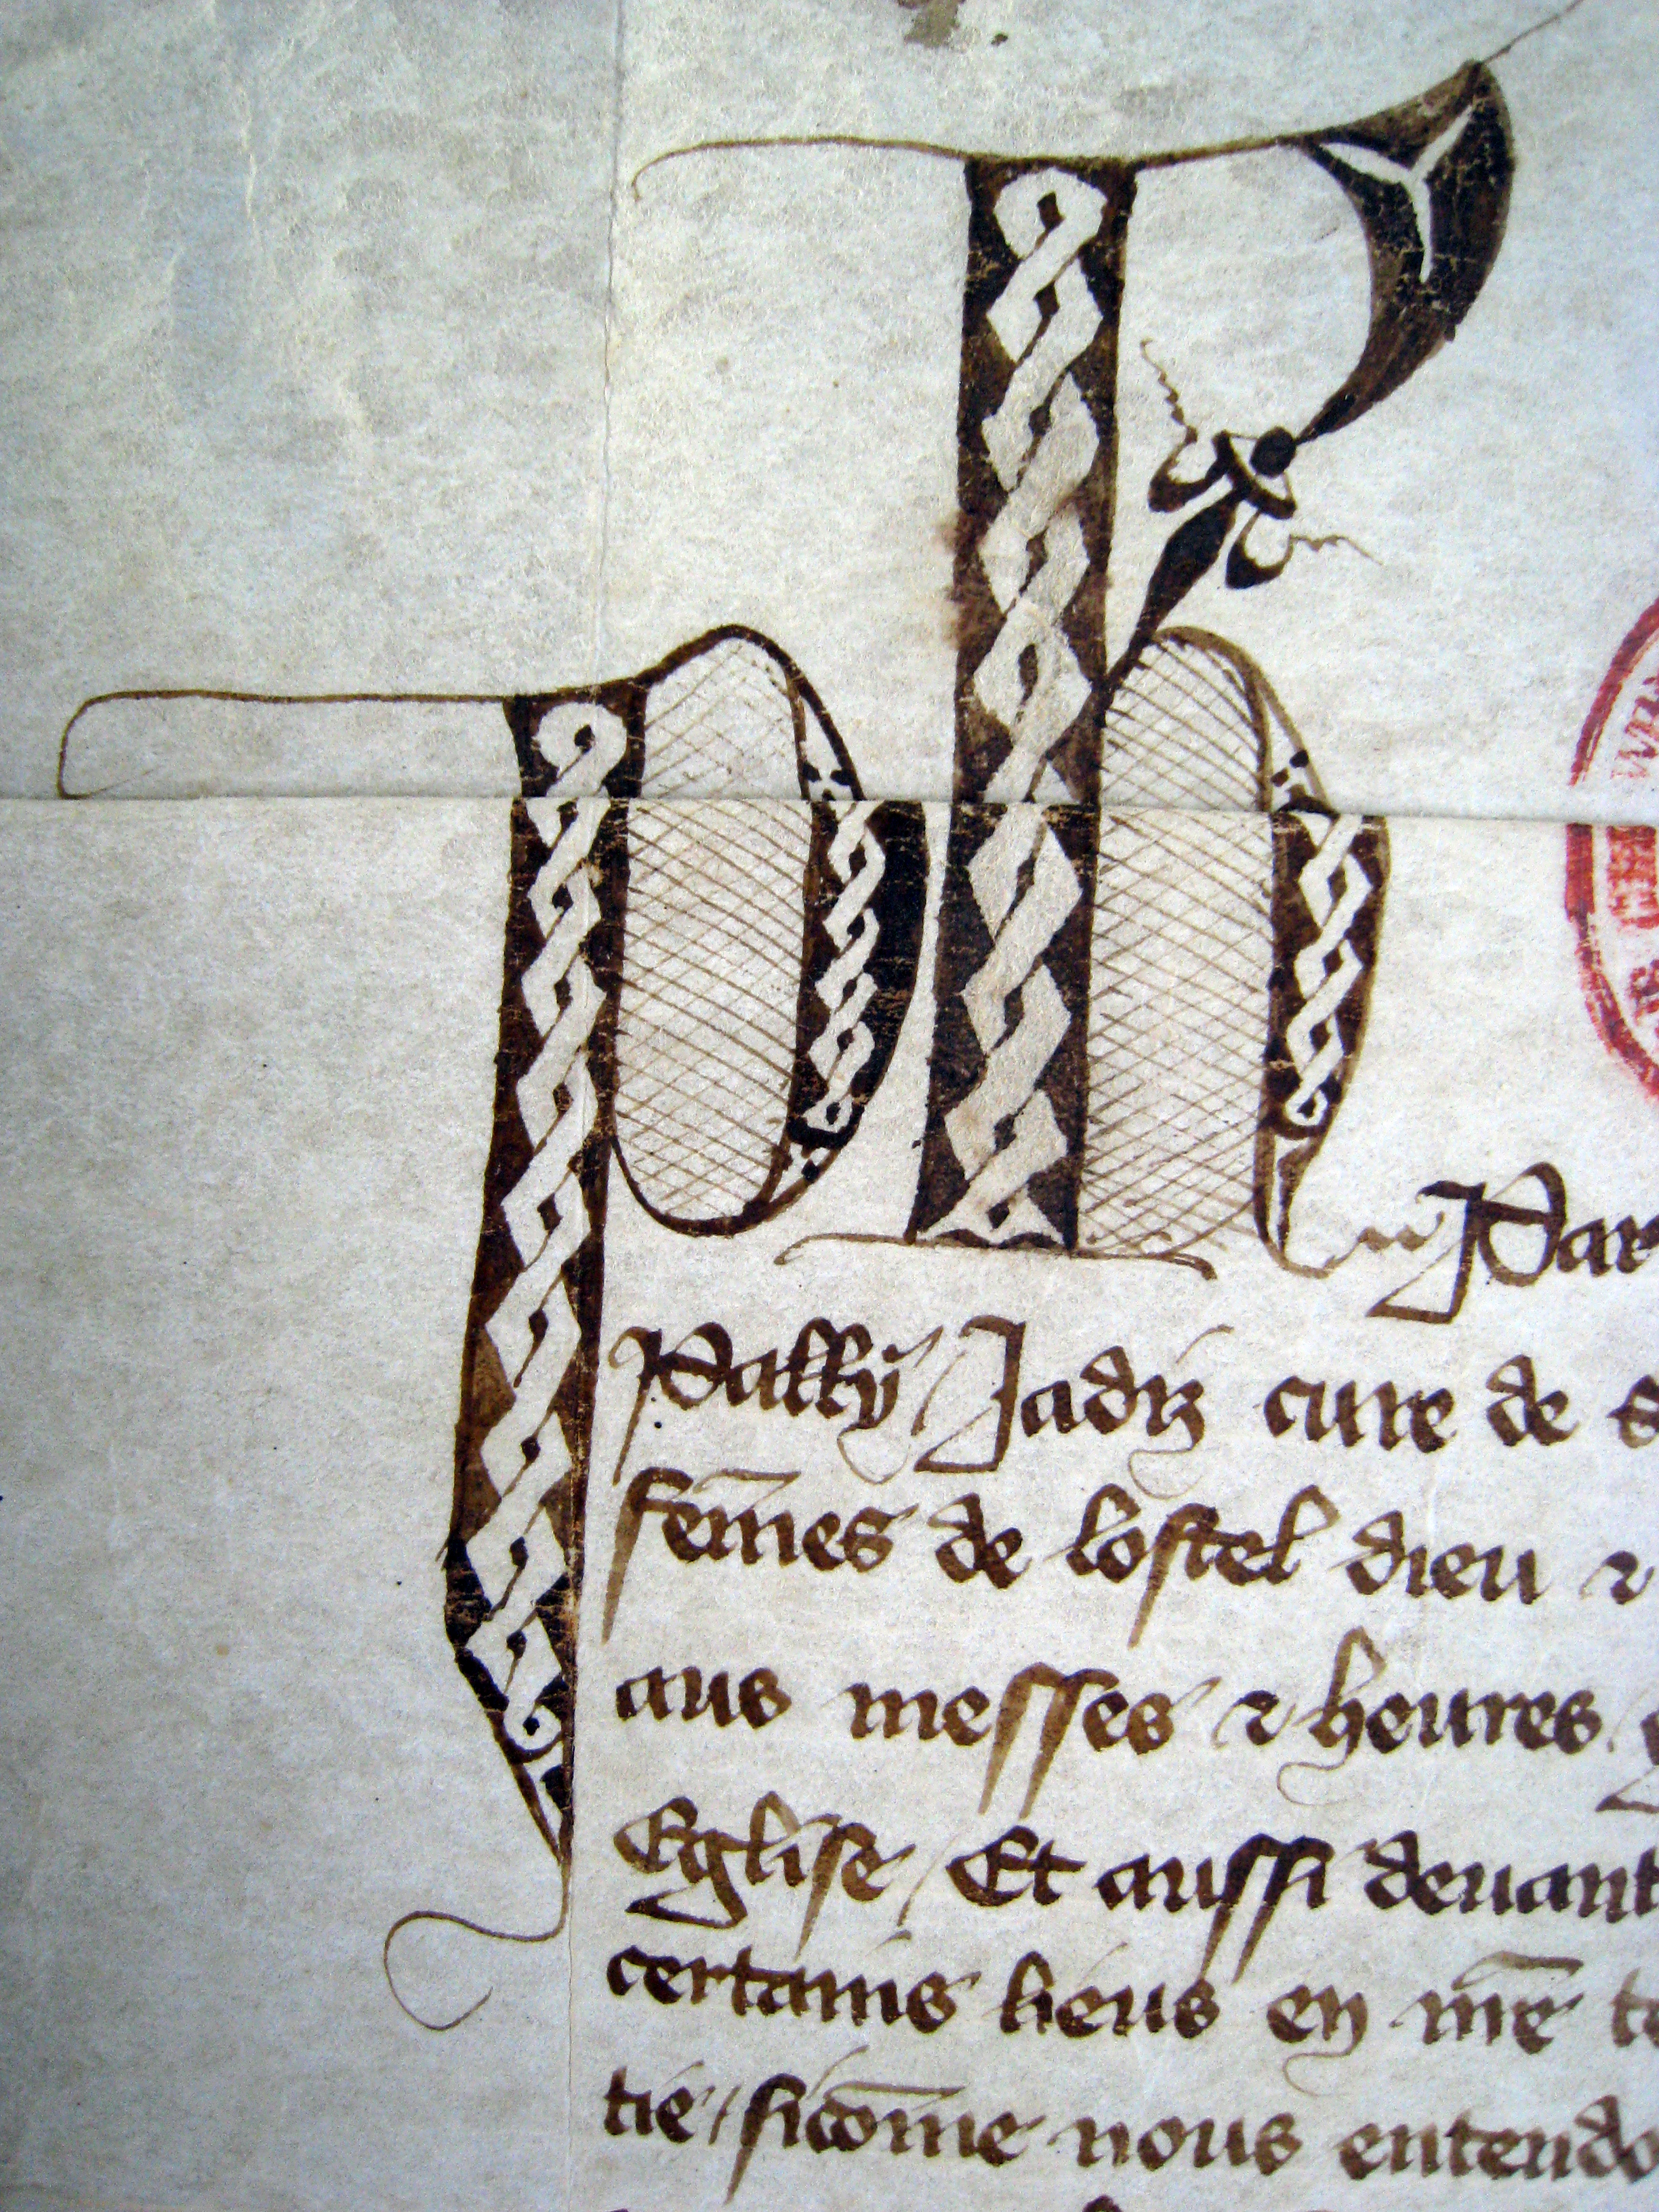 Ph Par
Pally Jadiz cure de s
fem̄es de lostel dieu ⁊
aus messes ⁊ heures
Eglise / Et aussi deuant
certains lieus en mē te
tie / sicōme nous entendo